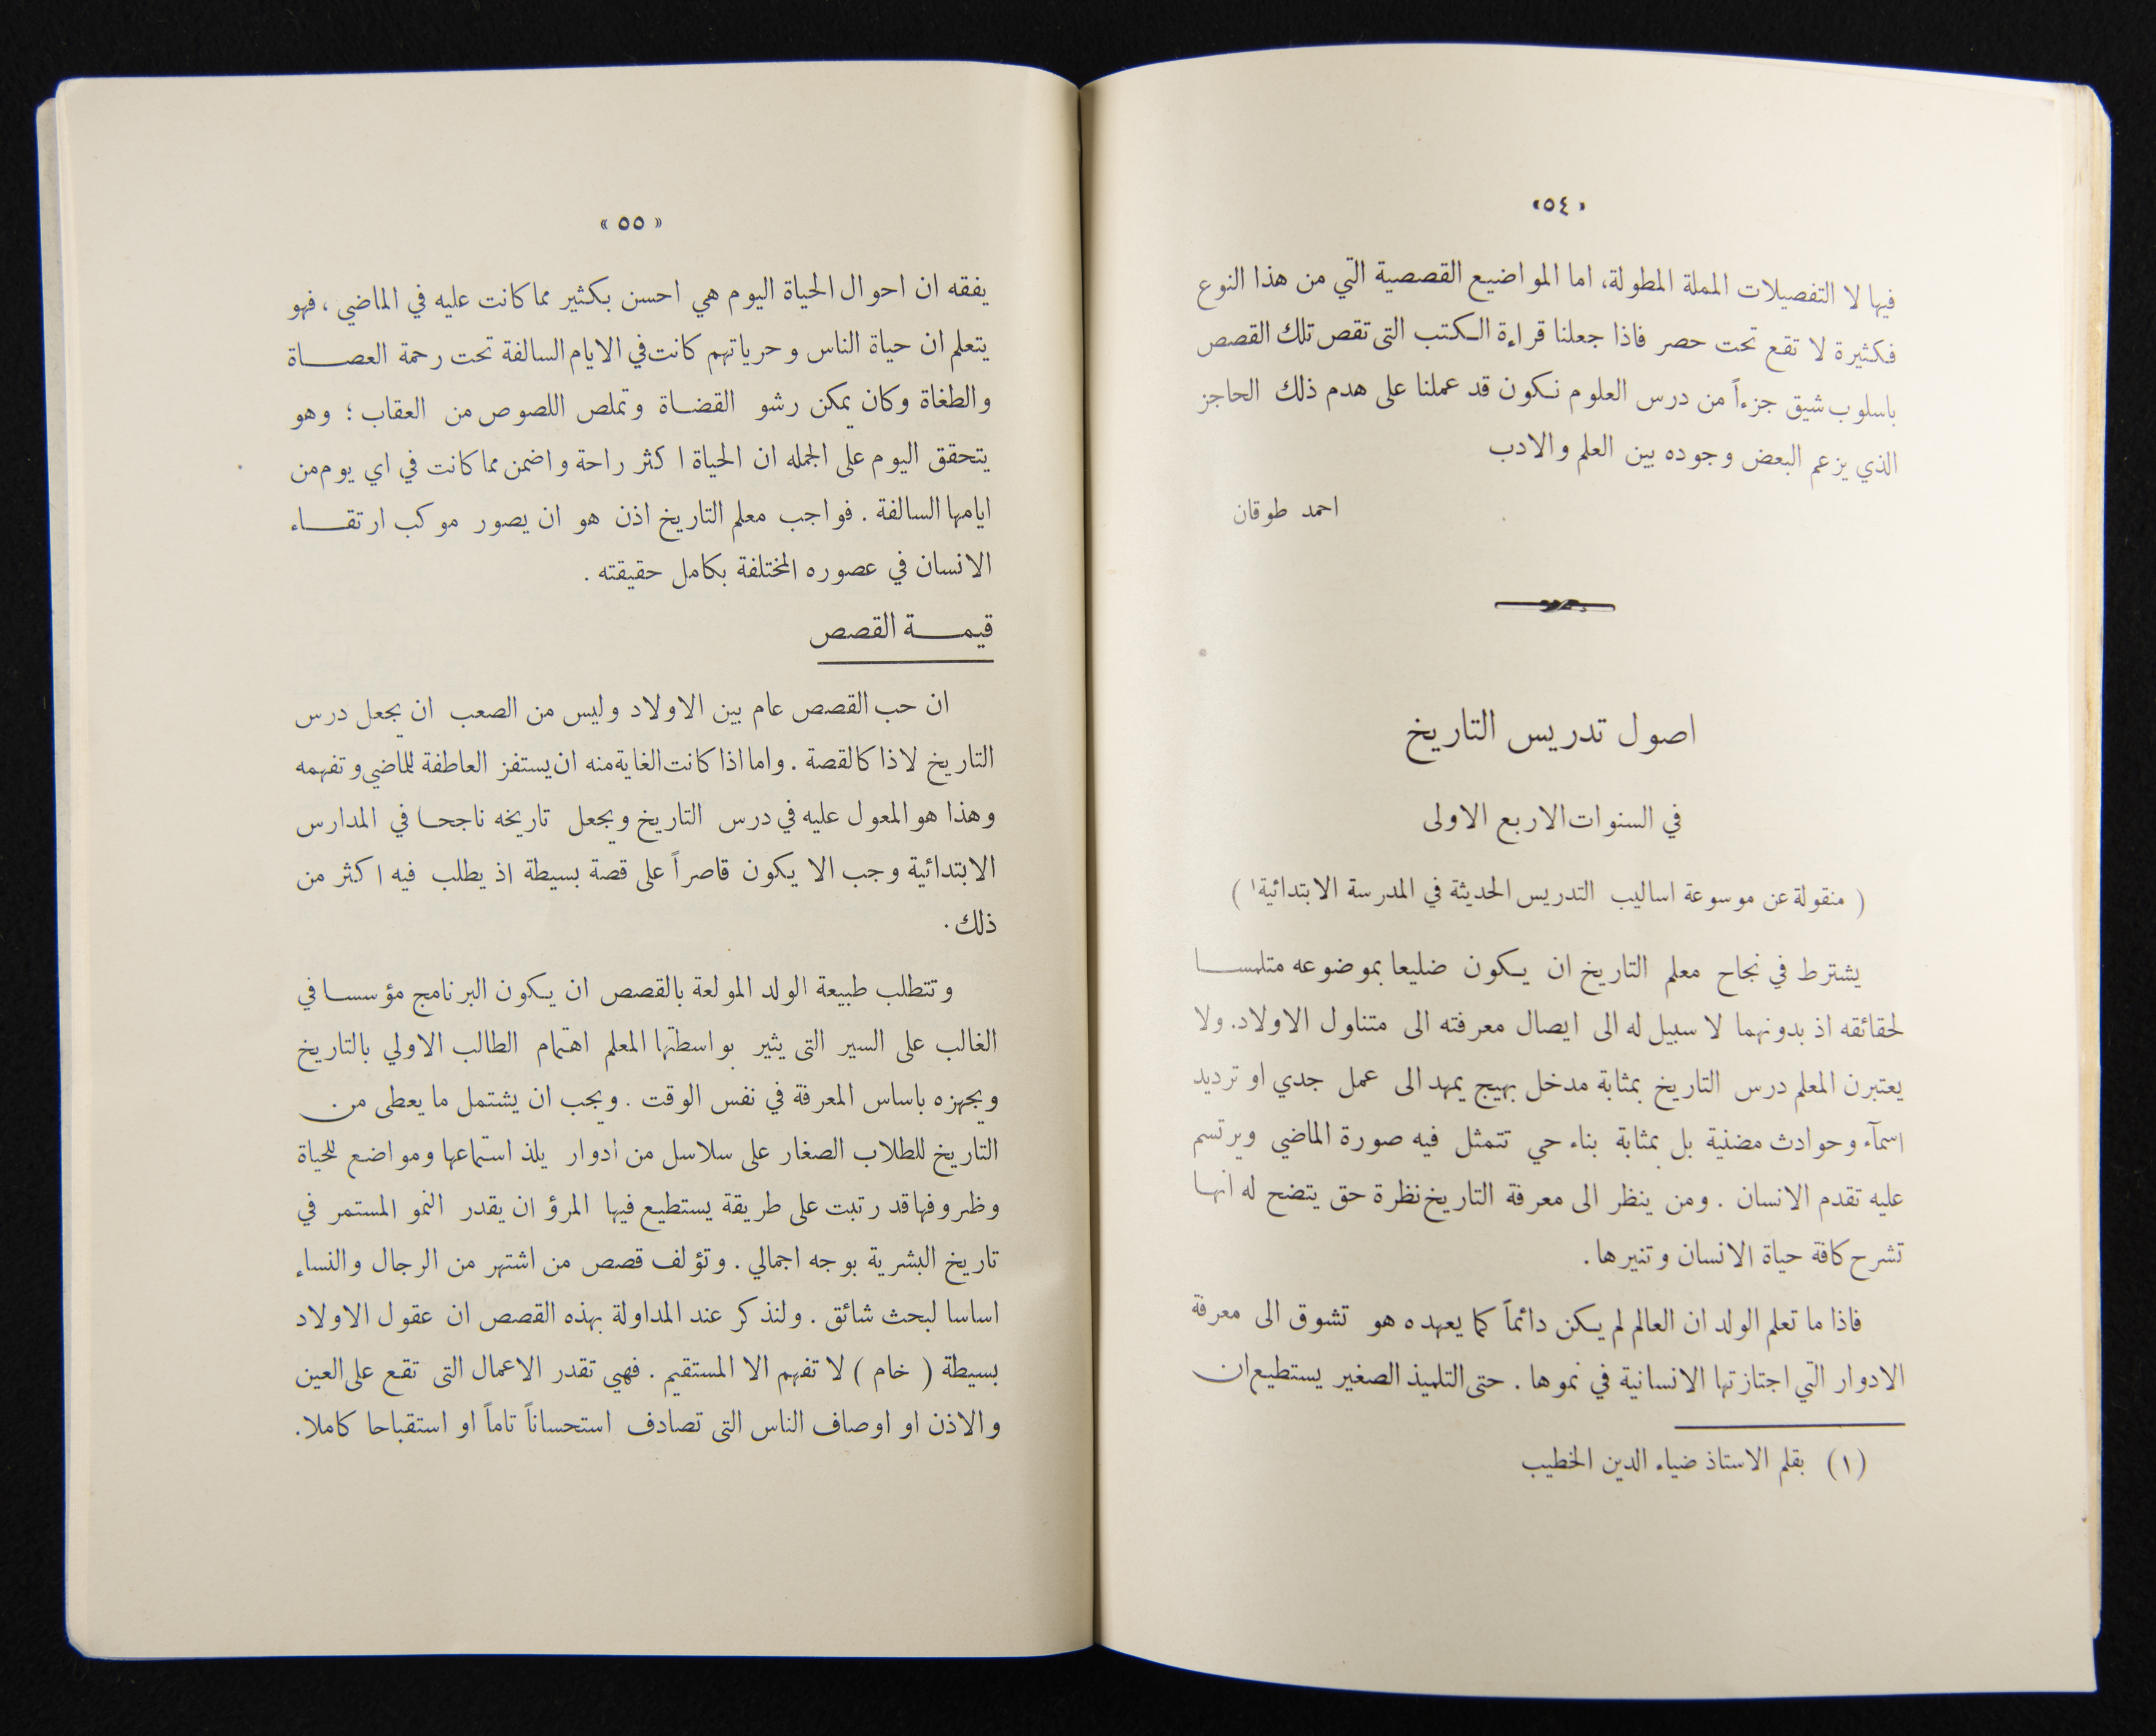 «٥٤»
فيها لا التفصيلات المملة المطولة، اما المواضيع القصصية التي من هذا النوع
فكثيرة لا تقع تحت حصر فاذا جعلنا قراءة الكتب التى تقص تلك القصص
باسلوب شيق جزءاً من درس العلوم نكون قد عملنا على هدم ذلك الحاجز
الذي يزعم البعض وجوده بين العلم والادب
احمد طوقان
اصول تدريس التاريخ
في السنوات الاربع الاولى
( منقولة عن موسوعة اساليب التدريس الحديثة في المدرسة الابتدائية١ )
يشترط في نجاح معلم التاريخ ان يكون ضليعا بموضوعه متلمسا
لحقائقه اذ بدونهما لا سبيل له الى ايصال معرفته الى متناول الاولاد. ولا
يعتبرن المعلم درس التاريخ بمثابة مدخل بهيج يمهد الى عمل جدي او ترديد
اسمآء وحوادث مضنية بل بمثابة بناء حي تتمثل فيه صورة الماضي ويرتسم
عليه تقدم الانسان . ومن ينظر الى معرفة التاريخ نظرة حق يتضح له انها
تشرح كافة حياة الانسان وتنيرها .
فاذا ما تعلم الولد ان العالم لم يكن دائماً كما يعهده هو تشوق الى معرفة
الادوار التي اجتازتها الانسانية في نموها . حتى التلميذ الصغير يستطيع ان
(١) بقلم الاستاذ ضياء الدين الخطيب
« ٥٥ »
يفقه ان احوال الحياة اليوم هي احسن بكثير مما كانت عليه في الماضي ، فهو
يتعلم ان حياة الناس وحرياتهم كانت في الايام السالفة تحت رحمة العصاة
والطغاة وكان يمكن رشو القضاة وتملص اللصوص من العقاب ؛ وهو
يتحقق اليوم على الجمله ان الحياة اكثر راحة واضمن مما كانت في اي يوم من
ايامها السالفة . فواجب معلم التاريخ اذن هو ان يصور موكب ارتقاء
الانسان في عصوره المختلفة بكامل حقيقته .
قيمة القصص
ان حب القصص عام بين الاولاد وليس من الصعب ان يجعل درس
التاريخ لاذا كالقصة . واما اذا كانت الغاية منه ان يستفز العاطفة للماضي وتفهمه
وهذا هو المعول عليه في درس التاريخ ويجعل تاريخه ناجحا في المدارس
الابتدائية وجب الا يكون قاصراً على قصة بسيطة اذ يطلب فيه اكثر من
ذلك .
وتتطلب طبيعة الولد المولعة بالقصص ان يكون البرنامج مؤسسا في
الغالب على السير التى يثير بواسطتها المعلم اهتمام الطالب الاولي بالتاريخ
ويجهزه باساس المعرفة في نفس الوقت . ويجب ان يشتمل ما يعطى من
التاريخ للطلاب الصغار على سلاسل من ادوار يلذ استماعها ومواضع للحياة
وظروفها قد رتبت على طريقة يستطيع فيها المرؤ ان يقدر النمو المستمر في
تاريخ البشرية بوجه اجمالي . وتؤلف قصص من اشتهر من الرجال والنساء
اساسا لبحث شائق . ولنذكر عند المداولة بهذه القصص ان عقول الاولاد
بسيطة ( خام ) لا تفهم الا المستقيم . فهي تقدر الاعمال التى تقع على العين
والاذن او اوصاف الناس التى تصادف استحساناً تاماً او استقباحا كاملا.